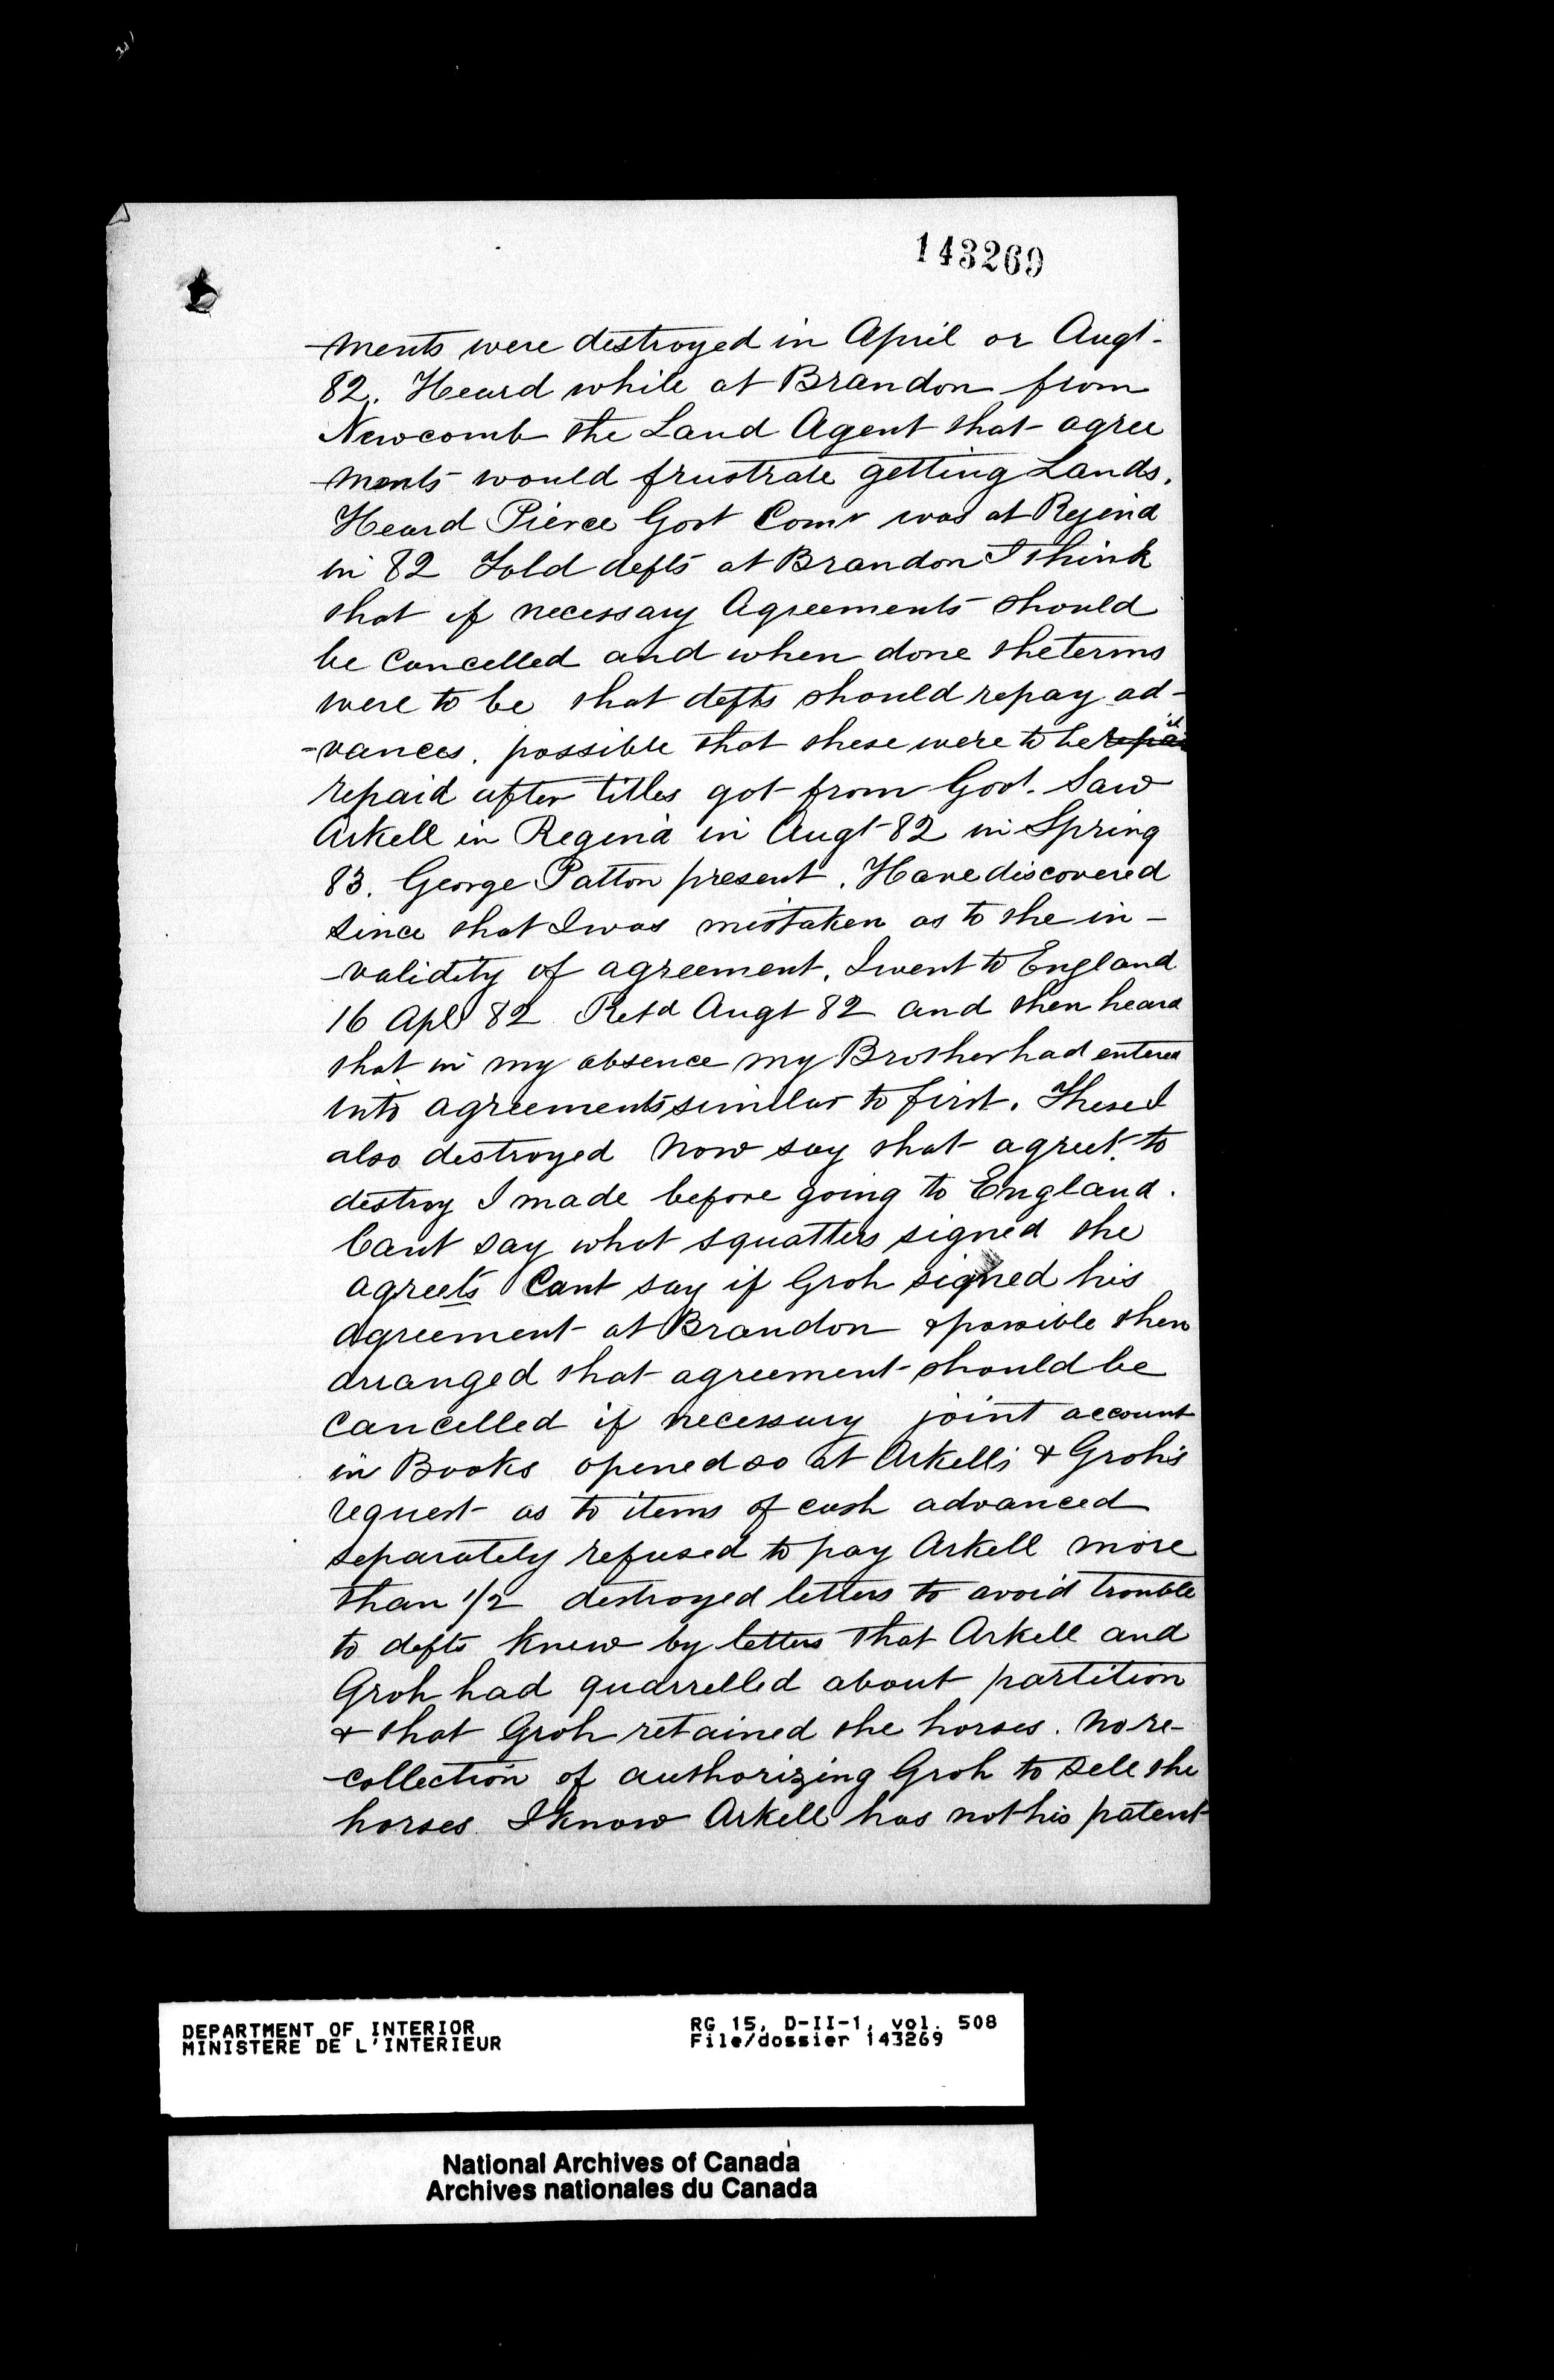 143269
-ments were destroyed in April or Augt.
82. Heard while at Brandon from
Newcomb the Land Agent that agree
-ments would frustrate getting Lands.
Heard Pierce Govt Comr was at Regina
in 82 Told defts at Brandon I think
that if necessary Agreements should
be Cancelled and when done the terms
were to be that defts should repay ad-
-vances. possible that these were to be repaid
repaid after titles got from Govt. Saw
Arkell in Regina in Augt 82 in Spring
83. George Patton present. Have discovered
since that I was mistaken as to the in-
-validity of agreement. I went to England
16 Apl 82 Retd Augt 82 and then heard
that in my absence my Brother had entered
into agreements similar to first. These I
also destroyed Now say that agreet. to
destroy I made before going to England.
Cant say what squatters signed the
agreets Cant say if Groh signed his
agreement at Brandon & possible then
arranged that agreement should be
cancelled if necessary joint account
in Books opened so at Arkell's & Groh's
request as to items of cash advanced
separately refused to pay Arkell more
than 1/2 destroyed letters to avoid trouble
to defts Knew by letters that Arkell and
Groh had quarrelled about partition
& that Groh retained the horses. No re-
-collection of authorizing Groh to sell the
horses I know Arkell has not his patent
DEPARTMENT OF INTERIOR
MINISTERE DE L'INTERIEUR
RG 15, D-II-1, vol. 508
File/dossier 143269
National Archives of Canada
Archives nationales du Canada